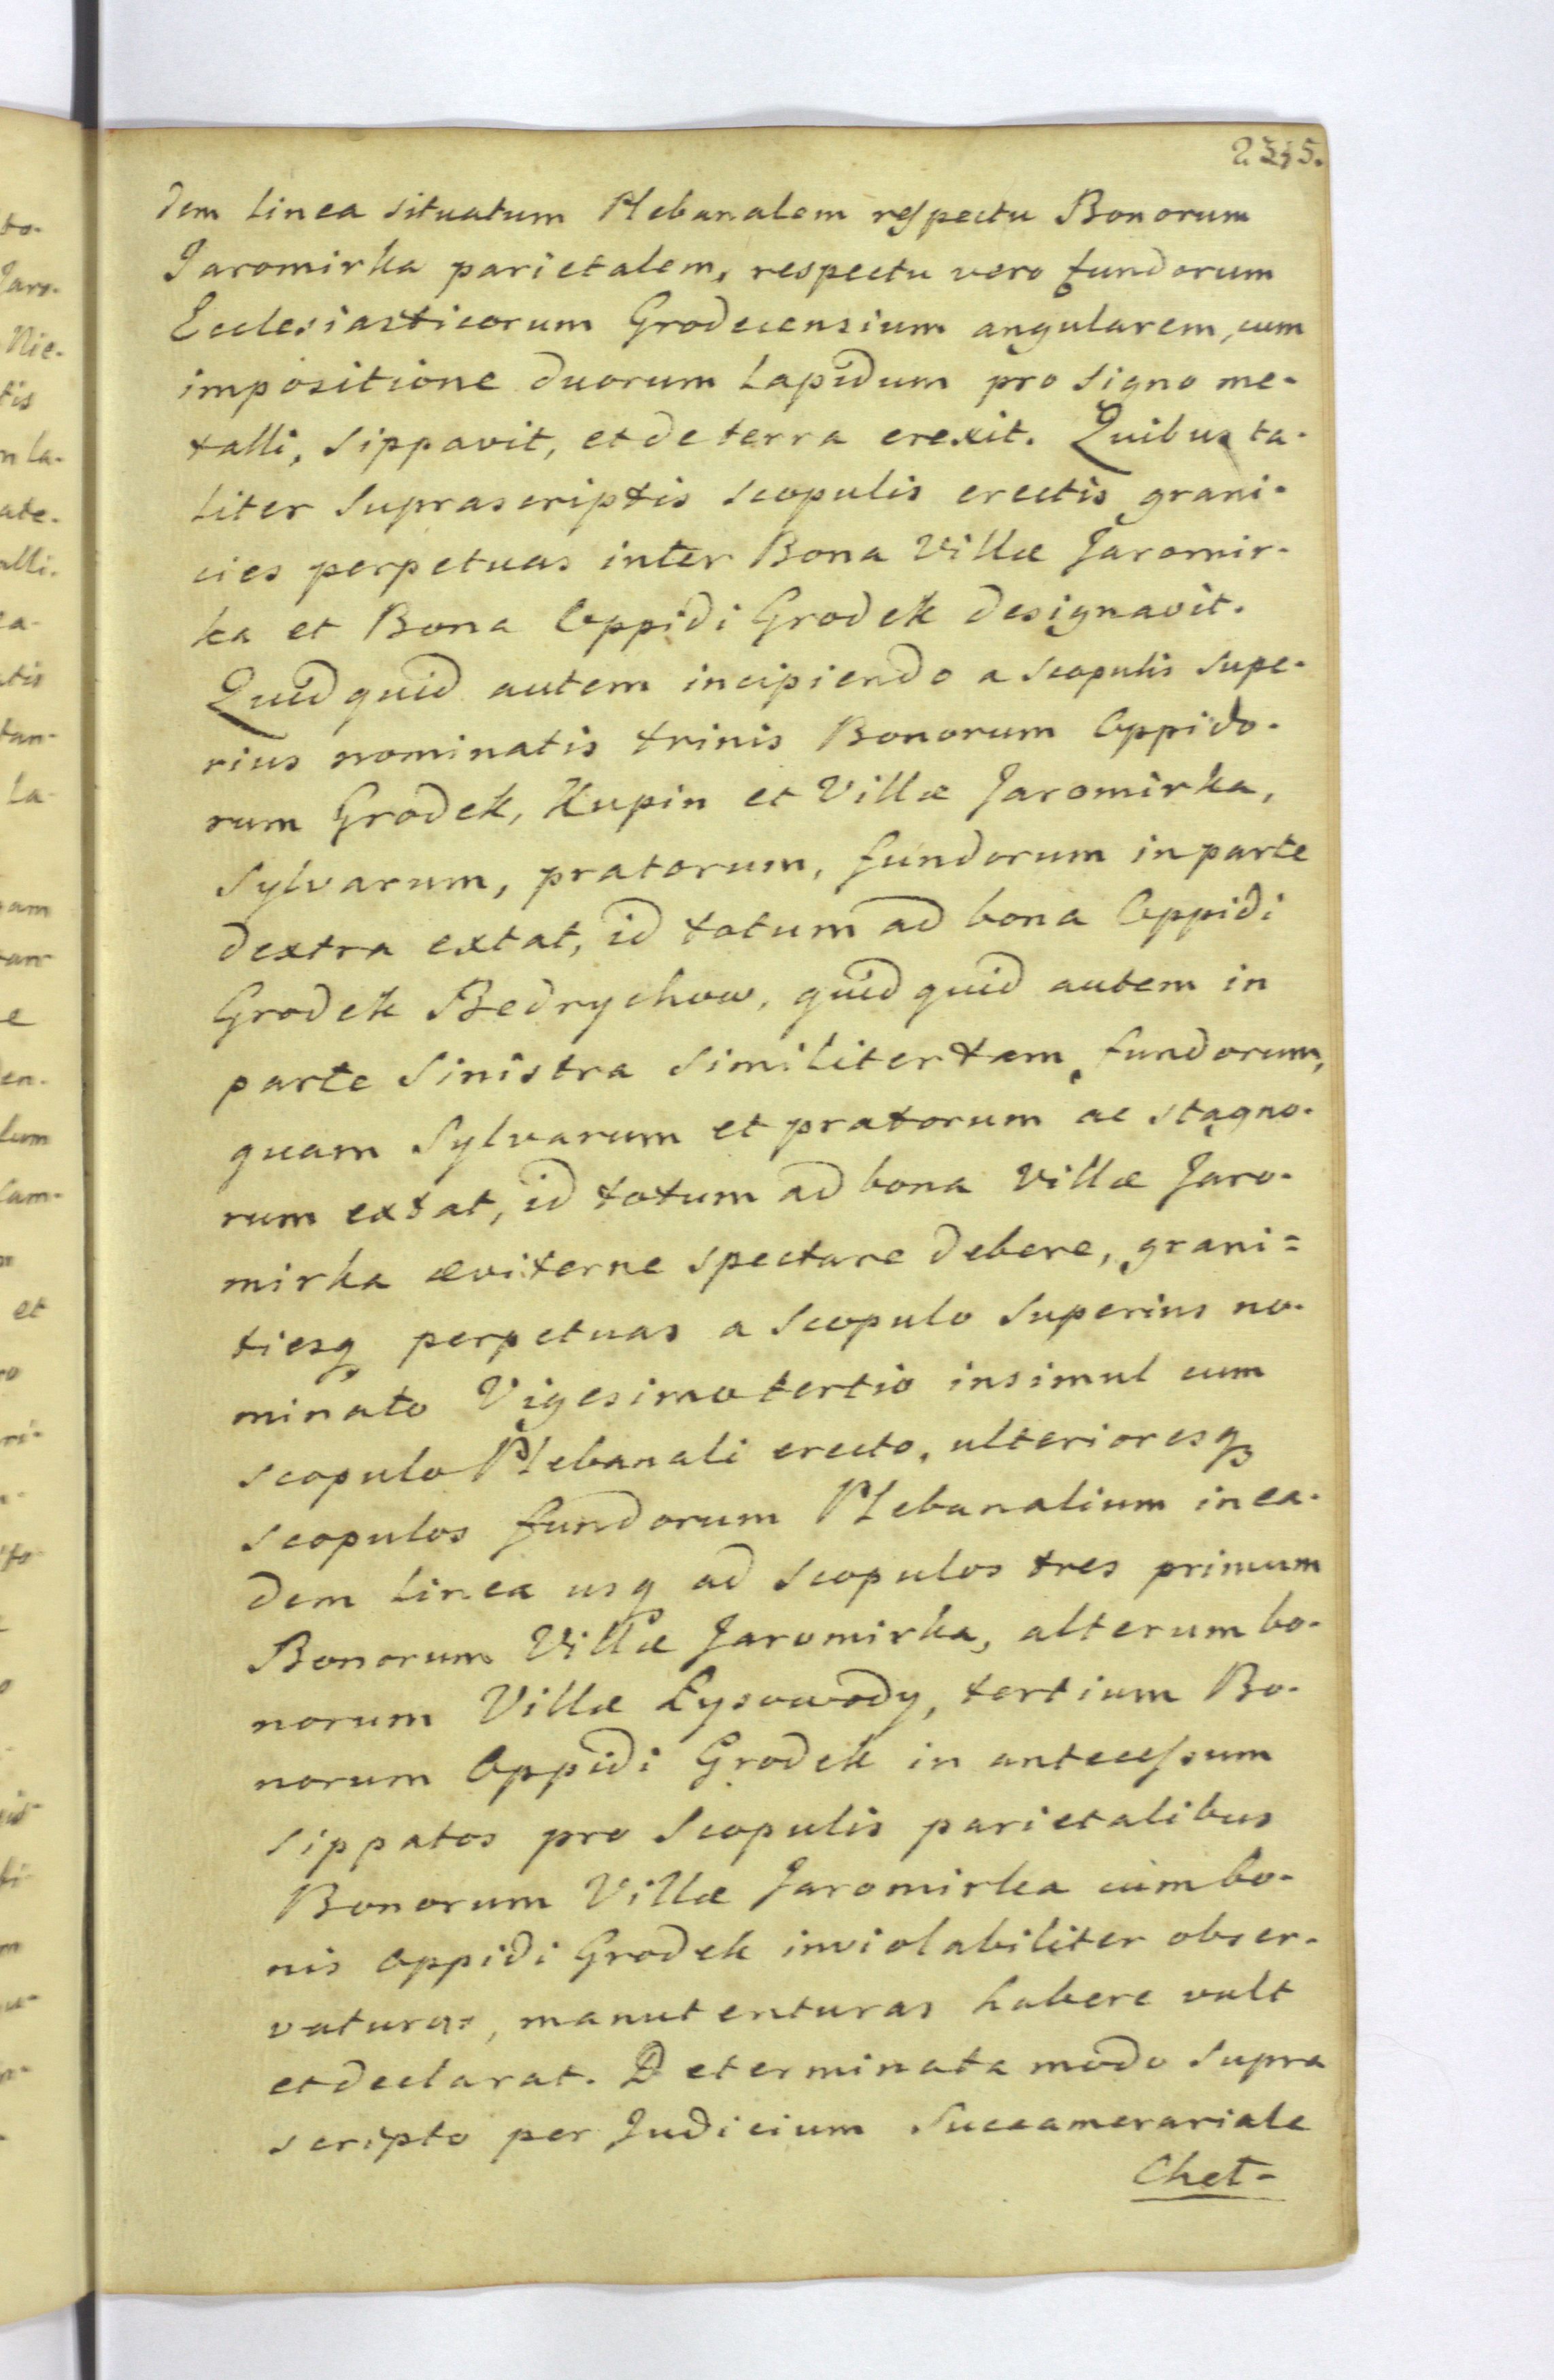 dem linea situatum Plebanalem respectu Bonorum
Jaromirka parietalem, respectu vero fundorum
Ecclesiasticorum Grodecensium angularem, cum
impositione duorum Lapidum pro signo me-
talli, sippavit, et de terra erexit. Quibus ta-
liter Suprascriptis scopulis erectis grani-
cies perpetuas inter Bona Villæ Jaromir-
ka et Bona Oppidi Grodek designavit.
Quidquid autem incipiendo a scopulis supe-
rius nominatis trinis Bonorum Oppido-
rum Grodek, Kupin et Villæ Jaromirka,
Sylvarum, pratorum, fundorum in parte
dextra extat, id totum ad bona Oppidi
Grodek Bedrychow, quidquid autem in
parte Sinistra Similiter tam fundorum,
quam Sylvarum et pratorum ac stagno-
rum extat, id totum ad bona Villæ Jaro-
mirka æviterne spectare debere, grani=
tiesq perpetuas a Scopulo Superius no-
minato Vigesimo tertio insimul cum
scopulo Plebanali erecto, ulterioresq
scopulos fundorum Plebanalium in ea-
dem linea usq ad scopulos tres primum
Bonorum Villæ Jaromirka, alterum bo-
norum Villæ Łysowody, tertium Bo-
norum Oppidi Grodek in antecessum
sippatos pro Scopulis parietalibus
Bonorum Villæ Jaromirka cum bo-
nis Oppidi Grodek inviolabiliter obser-
vaturas, manutenturas habere vult
et declarat. Determinata modo Supra
scripto per Judicium Succamerariale
Chet-